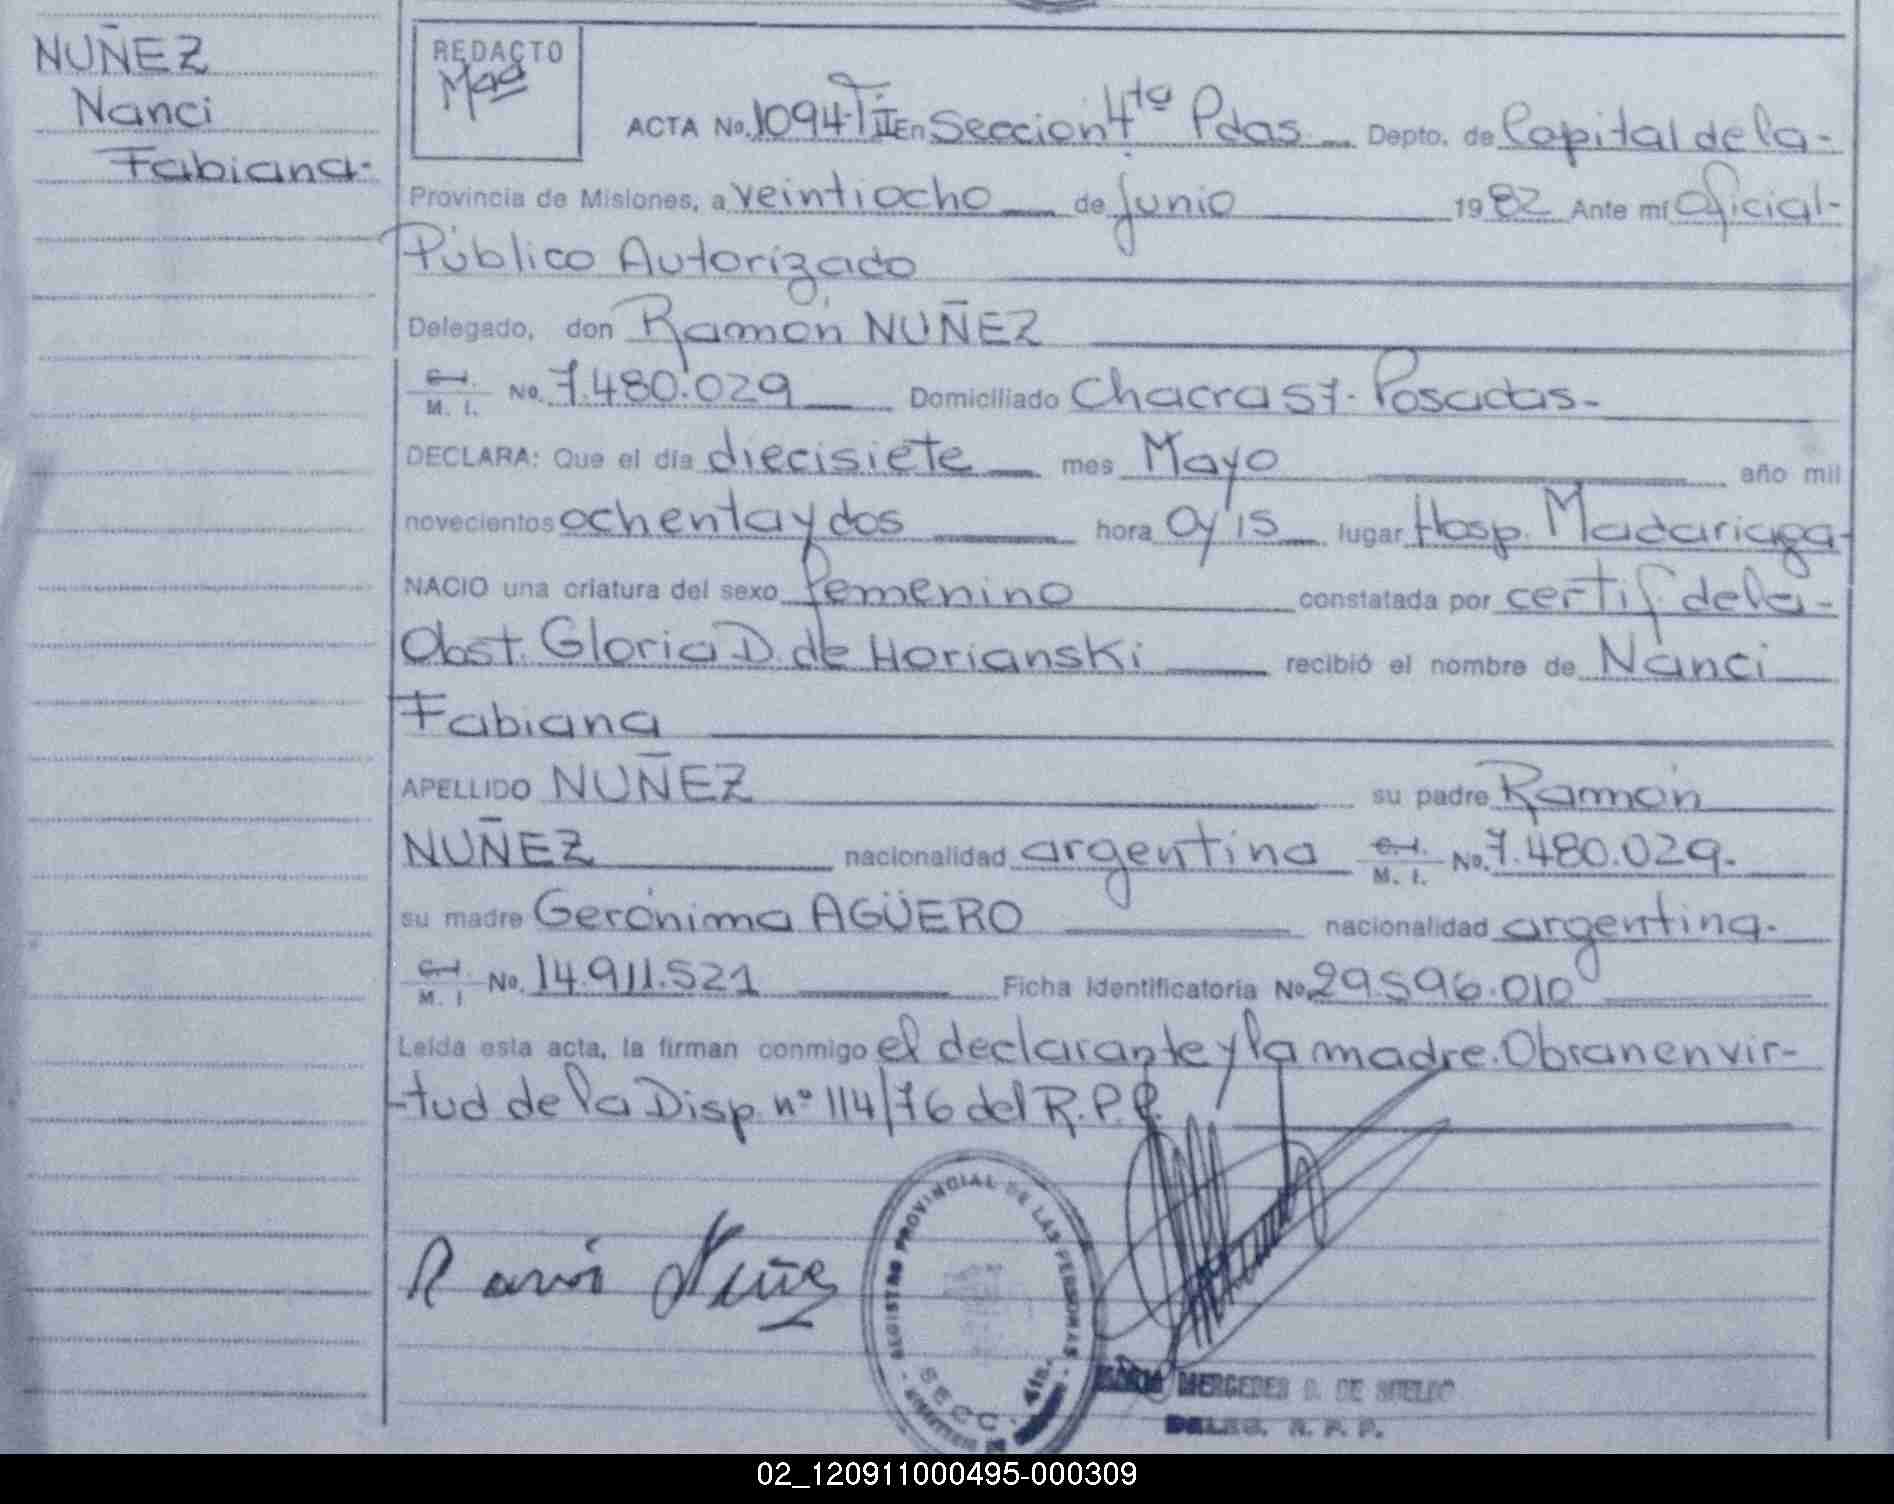 NUÑEZ
Nanci
Fabiana.
REDACTO
ACTA No. 1094 T II En Seccion 4ta Pdas Depto. de Capital de la-
Provincia de Misiones, a veintiocho de junio 1982 Ante mí Oficial-
Público Autorizado
Delegado, don Ramón NUÑEZ
C.I.
M. I. No. 7.480.029 Domiciliado Chacra 57. Posadas-
DECLARA: Que el día diecisiete mes Mayo año mil
novecientos ochenta y dos hora 0y15 lugar Hosp. Madariaga-
NACIO una criatura del sexo femenino constatada por certif. de la-
Obst. Gloria D. de Horianski recibió el nombre de Nanci
Fabiana
APELLIDO NUÑEZ su padre Ramón
NUÑEZ nacionalidad argentina C.I.
M. I. No. 7.480.029.
su madre Gerónima AGÜERO nacionalidad argentina.
C.I.
M. I No. 14.911.521 Ficha Identificatoria No. 29.596.010
Leída esta acta, la firman conmigo el declarante y la madre. Obran en vir-
-tud de la Disp. nº 114/76 del R.P.P.
Ramón Núñez
REGISTRO PROVINCIAL DE LAS PERSONAS
SECC. 4ta.
MERCEDES D. DE
DELEG. R. P. P.
02_120911000495-000309